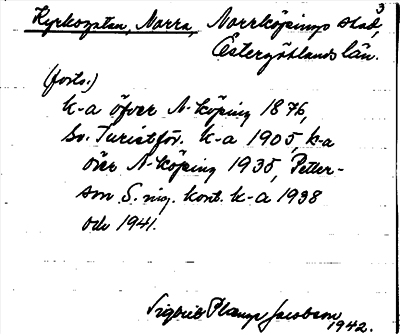 3
Kyrkogatan, Norra, Norrköpings stad,
Östergötlands län.
(forts.)
k-a öfver N-köping 1876,
Sv. Turistför. k-a 1905, k-a
över N-köping 1935, Petter-
son S. ing. kont. k-a 1938
och 1941.
Sigbrit Plange Jacobson
1942.